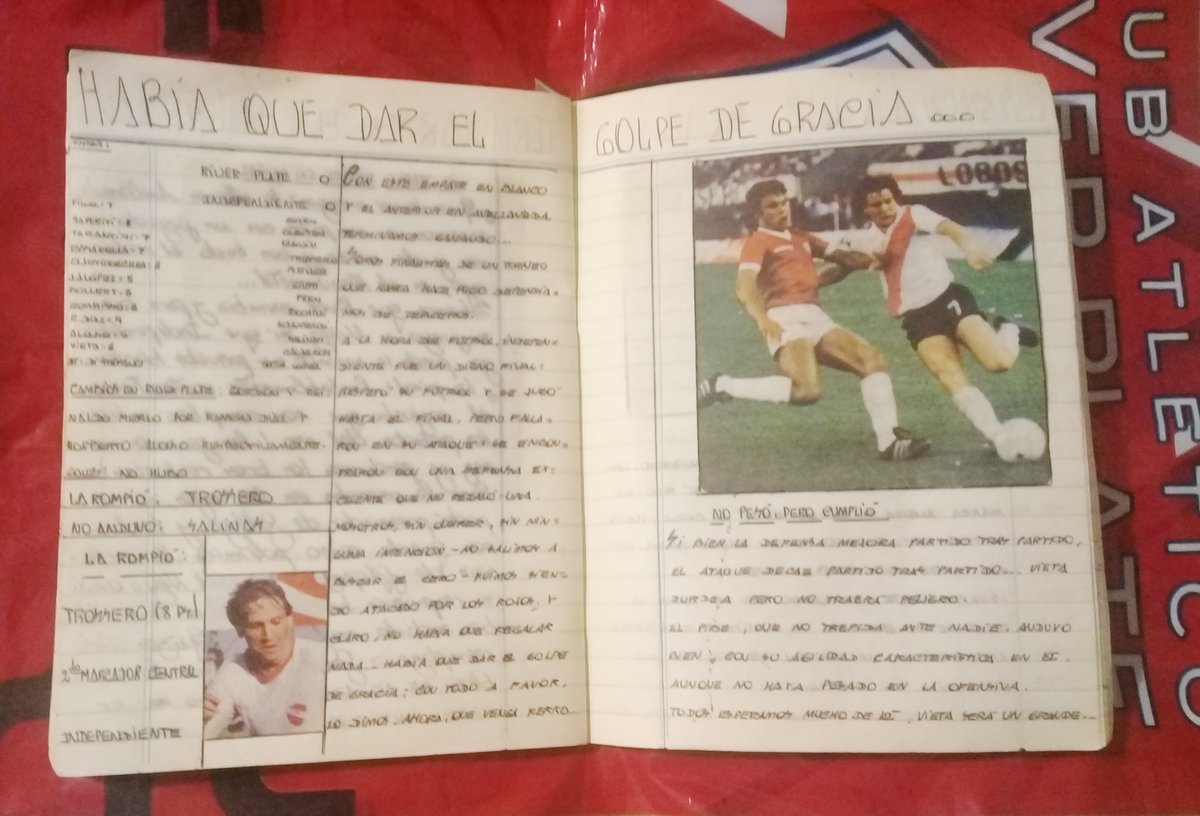 HABÍA QUE DAR EL GOLPE DE GRACIA...
RIVER PLATE 0
INDEPENDIENTE 0
FILLOL: 7
SAPORITI: 8
TARANTINI: 7
PASSARELLA: 7
J.J.LÓPEZ: 5
R.DÍAZ: 4
ALONSO:
VIETA: 6
CAMBIOS EN RIVER PLATE: GORDON Y REI-
NALDO MERLO POR RAMÓN DÍAZ Y
NORBERTO ALONSO RESPECTIVAMENTE.
GOLES: NO HUBO
LA ROMPIÓ: TROSSERO
NO ANDUVO: SALINAS
LA ROMPIÓ:
TROSSERO (8 PS)
2do MARCADOR CENTRAL
INDEPENDIENTE
CON ESTE EMPATE EN BLANCO
Y EL ANTERIOR EN AVELLANEDA
TERMINAMOS GANANDO...
SOMOS FINALISTAS DE UN TORNEO
QUE HASTA HACE POCO DEPENDÍA-
MOS DE TERCEROS.
A LA HORA DE FÚTBOL, INDEPEN-
DIENTE FUE UN DIGNO RIVAL:
RESPETÓ SU FÚTBOL Y SE JUGÓ
HASTA EL FINAL, PERO FALLA-
RON EN SU ATAQUE Y SE ENCON-
TRARON CON UNA DEFENSA EX-
CELENTE QUE NO REGALÓ UNA.
NOSOTROS, SIN QUERER, SIN NIN-
GUNA INTENCIÓN - NO SALIMOS A
BUSCAR EL CERO - FUIMOS SIEN-
DO ATACADO POR LOS ROJOS, Y
CLARO, NO HABÍA QUE REGALAR
NADA... HABÍA QUE DAR EL GOLPE
DE GRACIA: CON TODO A FAVOR,
LO DIMOS. AHORA, QUE VENGA FERRO...
LOBOS
7
NO PESÓ, PERO CUMPLIÓ
SI BIEN LA DEFENSA MEJORA PARTIDO TRAS PARTIDO,
EL ATAQUE DECAE PARTIDO TRAS PARTIDO... VIETA
ZURDEA PERO NO TRAERÁ PELIGRO.
EL PIBE, QUE NO TREPIDA ANTE NADIE, ANDUVO
BIEN, CON SU AGILIDAD CARACTERÍSTICA EN ÉL,
AUNQUE NO HAYA PESADO EN LA OFENSIVA.
TODOS ESPERAMOS MUCHO DE ÉL. VIETA SERÁ UN GRANDE...
UB ATLETICO
VER PLATE